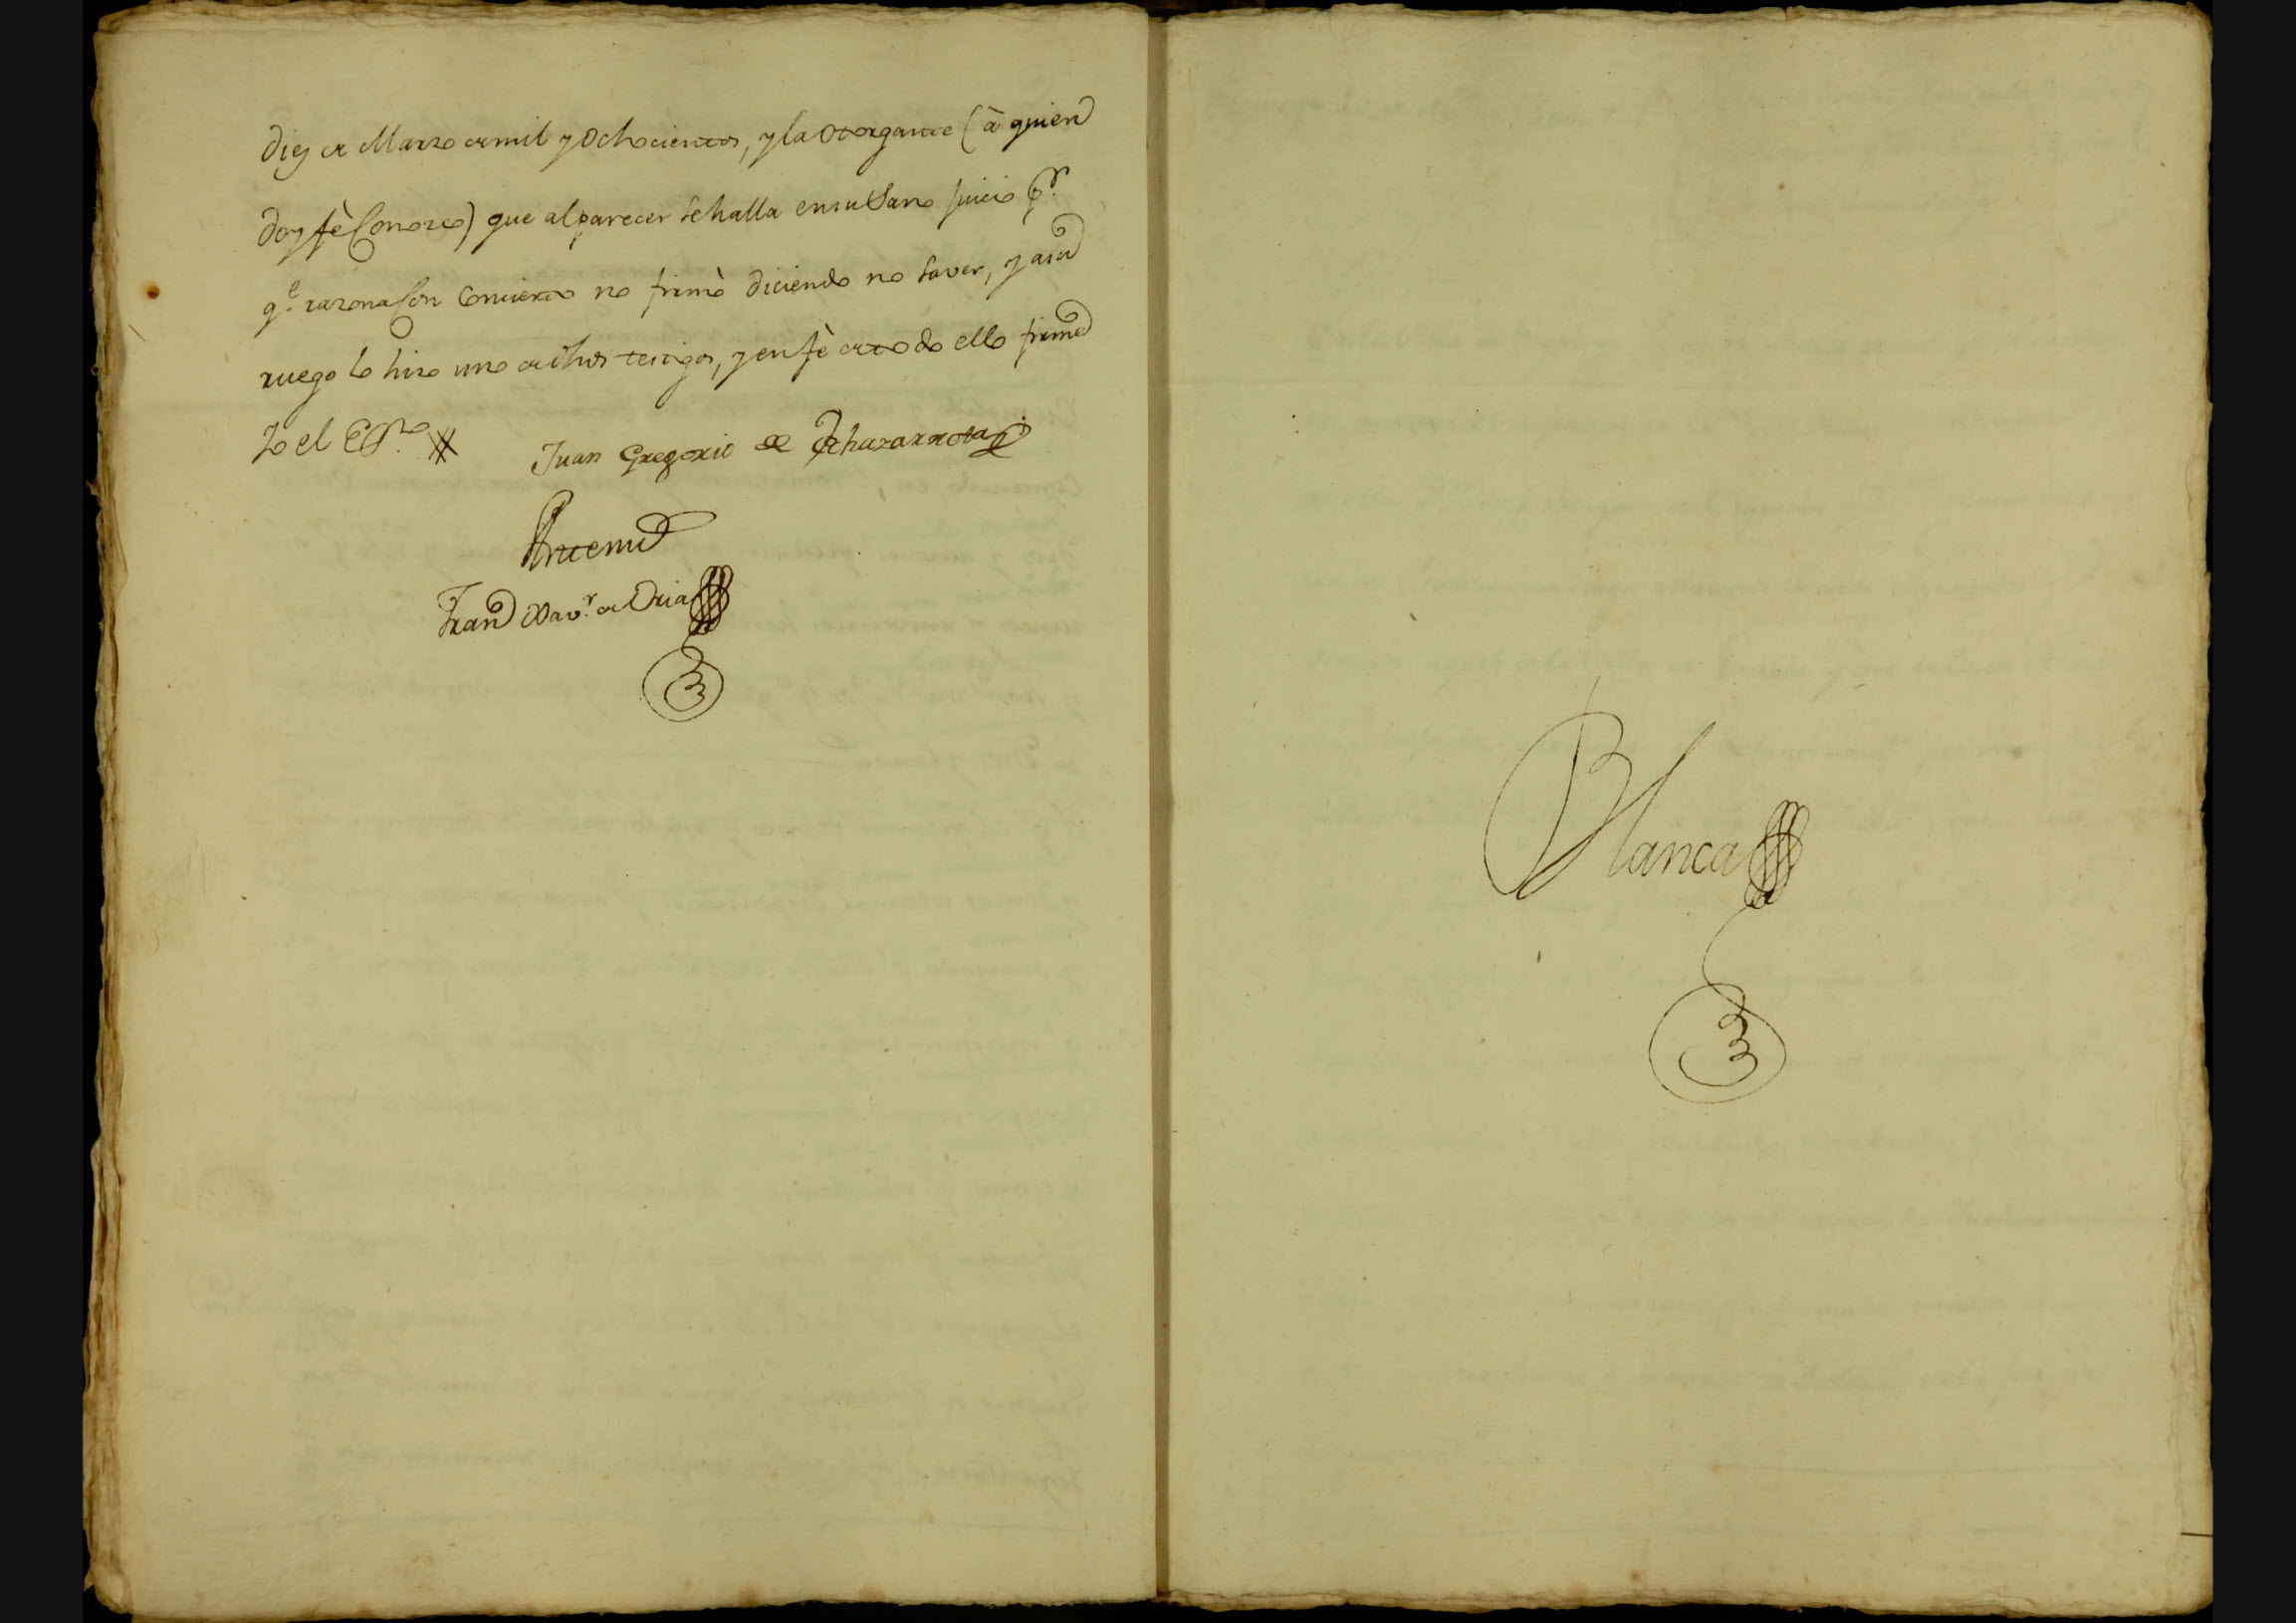 diez de Marzo de mil y Ochocientos, y la Otorgante (à quien
doy fè Conozco) que al parecer se halla en su Sano juicio pr.
qe. razona Con Concierto no firmò diciendo no Saver, y a su
ruego lo hizo uno de dhos testigos, y en fè de todo ello firmé
Yo el Essno.
Juan Gregorio de Echazarreta
Antemi
Franco Xavr. de Oria
Blanca